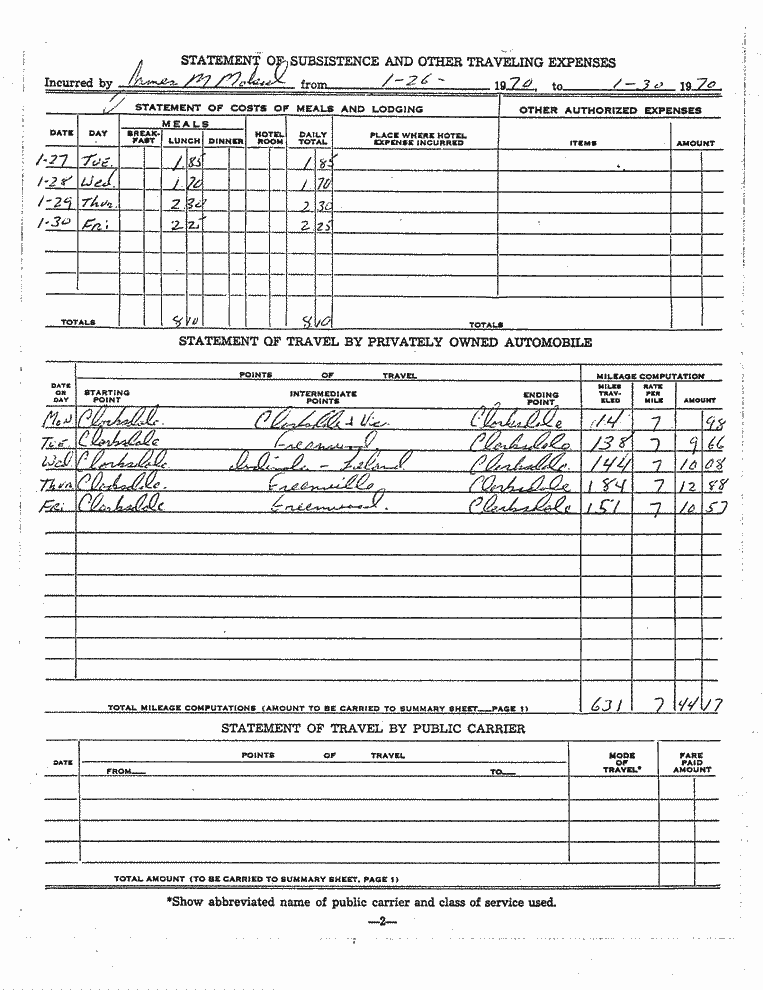 STATEMENT OF SUBSISTENCE AND OTHER TRAVELING EXPENSES
Incurred by M from 1-26- 1970, to 1-30 1970
STATEMENT OF COSTS OF MEALS AND LODGING OTHER AUTHORIZED EXPENSES
DATE DAY MEALS BREAK-FAST LUNCH DINNER HOTEL ROOM DAILY TOTAL PLACE WHERE HOTEL EXPENSE INCURRED ITEMS AMOUNT
1-27 Tue. 1 85 1 85
1-28 Wed. 1 70 1 70
1-29 Thur. 2 30 2 30
1-30 Fri 2 25 2 25
TOTALS 8 10 8 10 TOTALS
STATEMENT OF TRAVEL BY PRIVATELY OWNED AUTOMOBILE
POINTS OF TRAVEL MILEAGE COMPUTATION
DATE OR DAY STARTING POINT INTERMEDIATE POINTS ENDING POINT MILES TRAV-ELED RATE PER MILE AMOUNT
Mon Clarksdale. Clarksdale & Vic. Clarksdale 14 7 98
Tue Clarksdale Greenwood Clarksdale 138 7 9 66
Wed Clarksdale Indianola - Leland Clarksdale. 144 7 10 08
Thur Clarksdale. Greenville Clarksdale 184 7 12 88
Fri Clarksdale Greenwood. Clarksdale 151 7 10 57
TOTAL MILEAGE COMPUTATIONS (AMOUNT TO BE CARRIED TO SUMMARY SHEET—PAGE 1) 631 7 44 17
STATEMENT OF TRAVEL BY PUBLIC CARRIER
DATE POINTS OF TRAVEL MODE OF TRAVEL* FARE PAID AMOUNT
FROM— TO—
TOTAL AMOUNT (TO BE CARRIED TO SUMMARY SHEET, PAGE 1)
*Show abbreviated name of public carrier and class of service used.
—2—